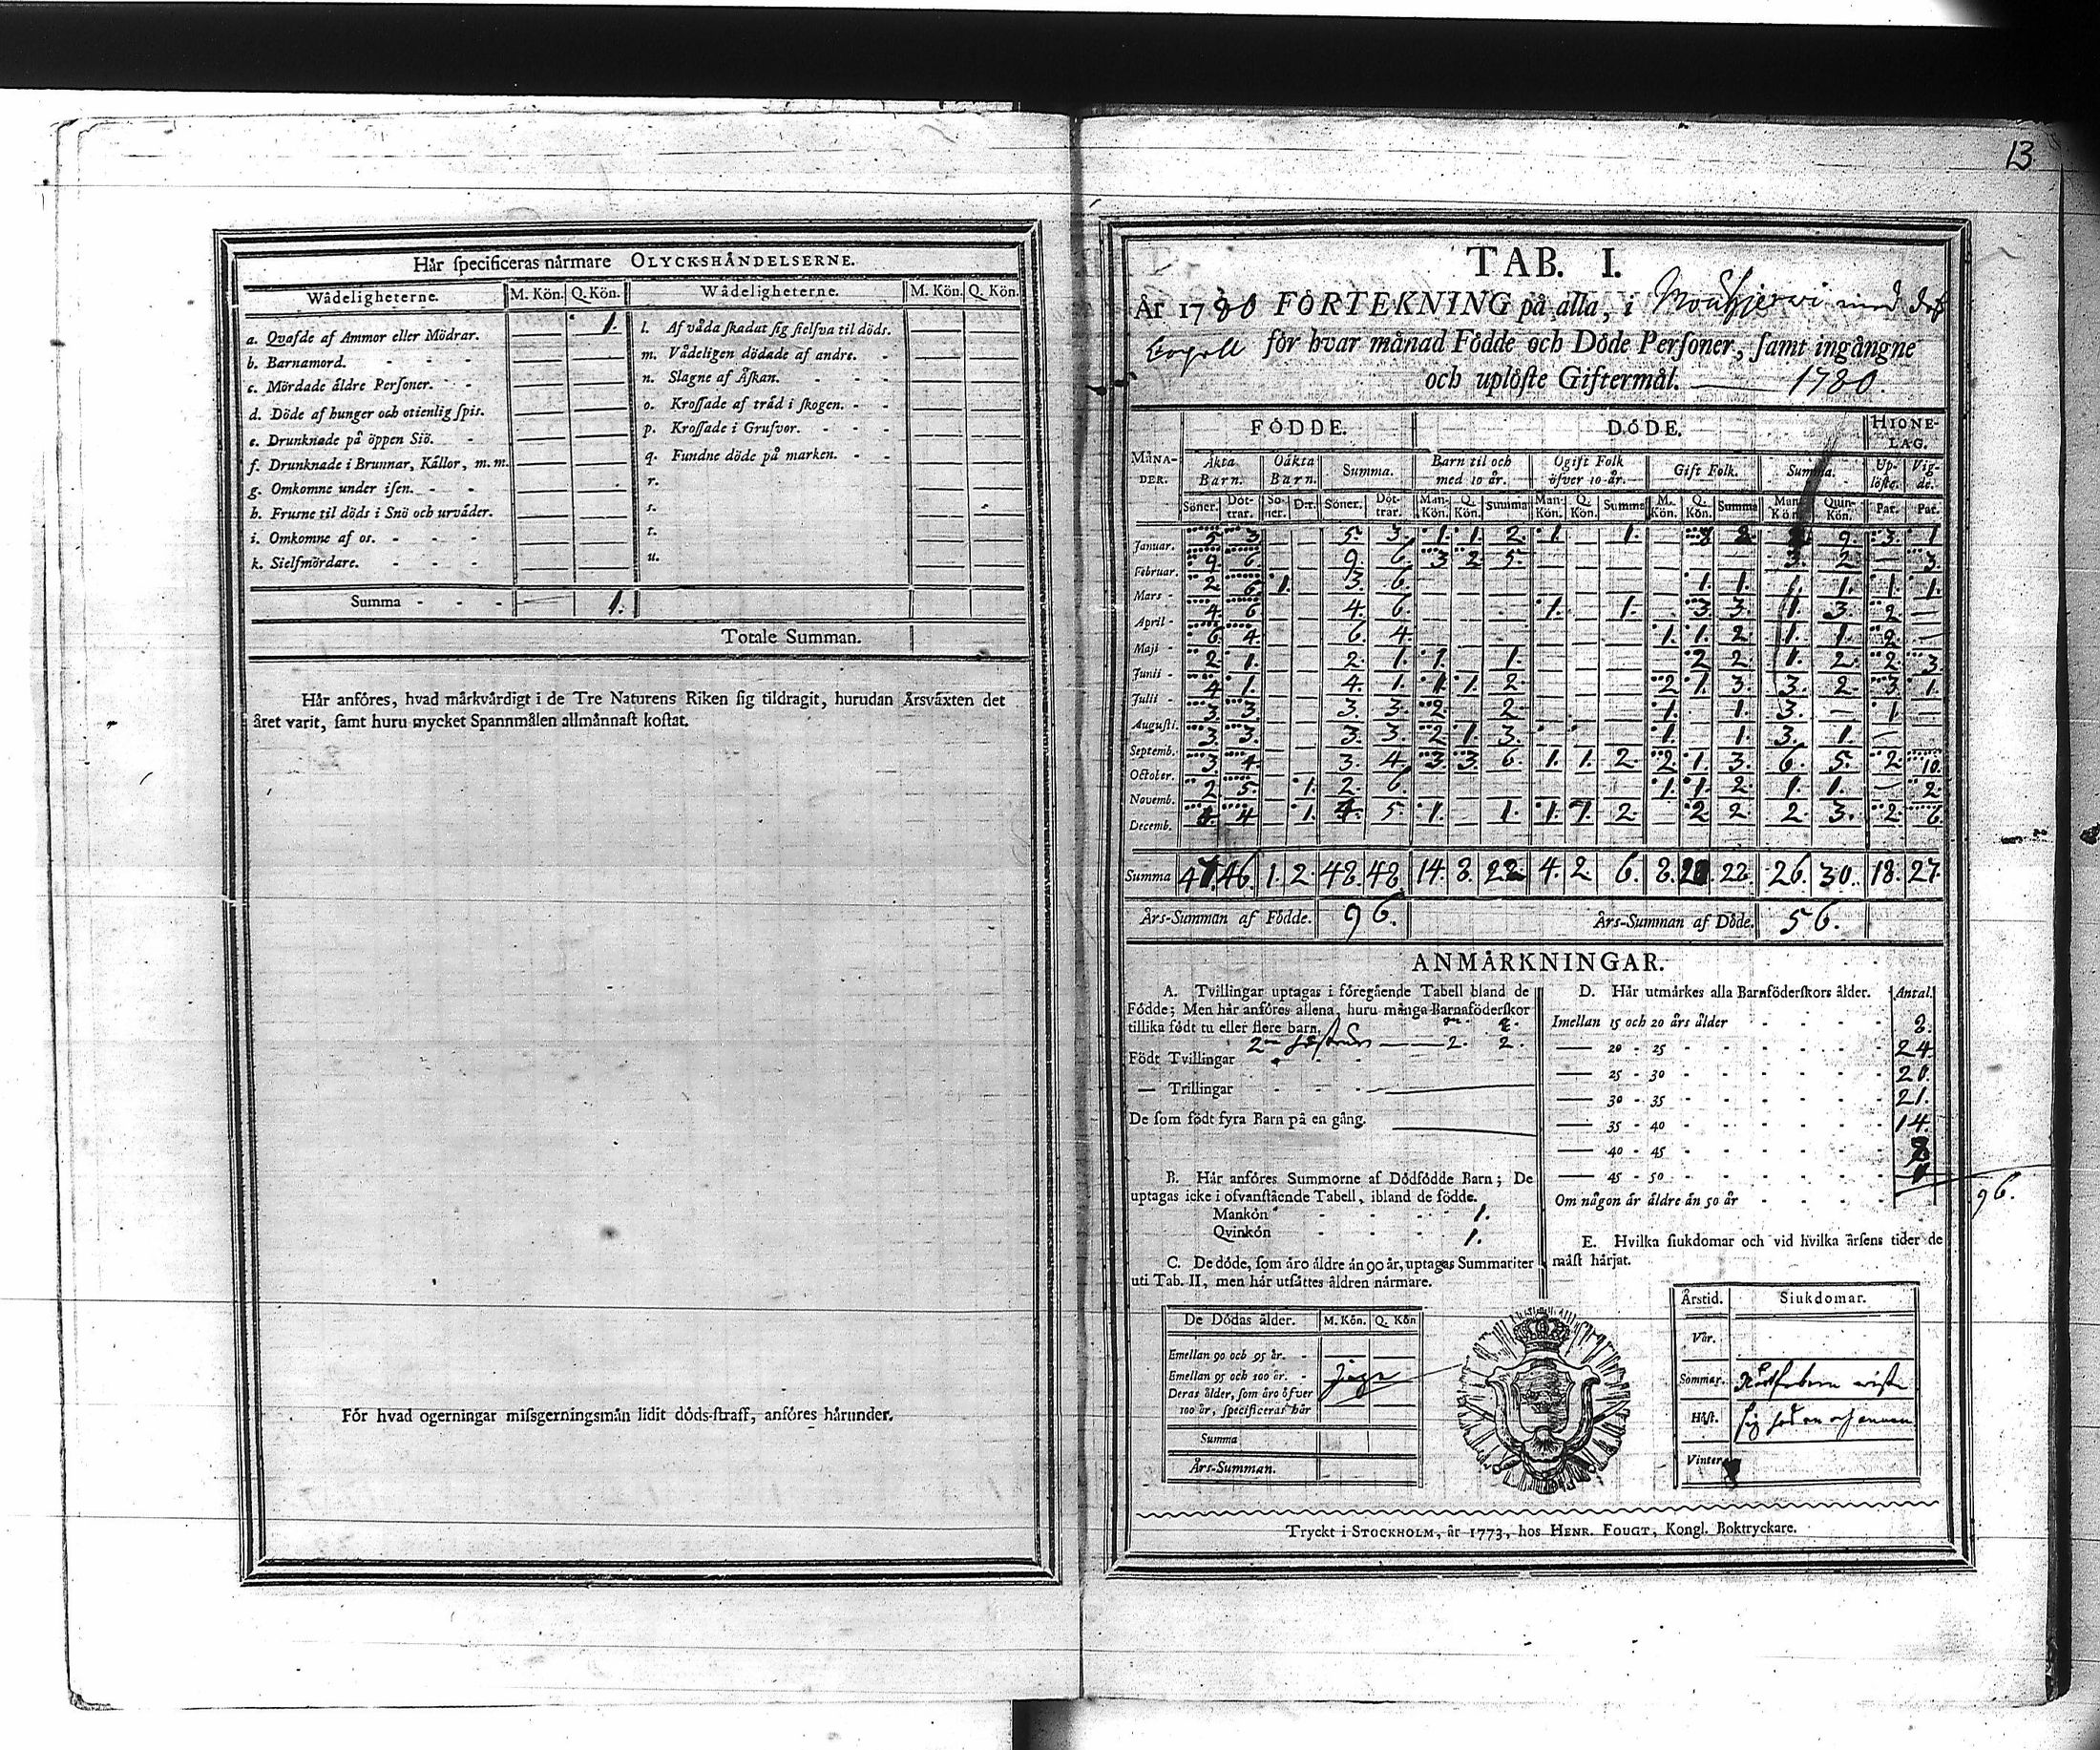 13
Hår specificeras nårmare OLYCKSHÅNDELSERNE.
Wådeligheterne. M. Kön. Q. Kön. Wådeligheterne. M. Kön. Q. Kön.
a. Qvafde af Ammor eller Mödrar. — 1. l. Af våda skadat sig sielfva til döds. — —
b. Barnamord. — — m. Vådeligen dödade af andre. — —
c. Mördade åldre Personer. — — n. Slagne af Åskan. — —
d. Döde af hunger och otienlig spis. — — o. Krossade af tråd i skogen. — —
e. Drunknade på öppen Siö. — — p. Krossade i Grufvor. — —
f. Drunknade i Brunnar, Kållor, m. m. — — q. Fundne döde på marken. — —
g. Omkomne under isen. — — r. — —
h. Frusne til döds i Snö och urvåder. — — s. — —
i. Omkomne af os. — — t. — —
k. Sielfmördare. — — u. — —
Summa - - - — 1.
Totale Summan.
Hår anföres, hvad mårkvårdigt i de Tre Naturens Riken sig tildragit, hurudan Årsvåxten det
året varit, samt huru mycket Spannmålen allmånnast kostat.
För hvad ogerningar missgerningsmån lidit döds-straff, anföres hårunder.
TAB. I.
År 1780 FÖRTEKNING på alla, i Mouhjerwi med dess
Capell för hvar månad Födde och Döde Personer, samt ingångne
och uplöste Giftermål. — 1780.
FÖDDE. DÖDE. HIONE-LAG.
MÅNA-DER. Åkta Barn. Oåkta Barn. Summa. Barn til och med 10 år. Ogift Folk öfver 10 år. Gift Folk. Summa. Up-löste. Vig-de.
Söner. Döt-trar. Sö-ner. D:r. Söner. Döt-trar. Man-Kön. Q. Kön. Summa Man-Kön. Q. Kön. Summa M. Kön. Q. Kön. Summa Man-Kön. Quin-Kön. Par. Par.
Januar. 5 3 — — 5. 3. 1. 1. 2. 1. — 1. — 8 8 9. 3. 1
Februar. 9 6. — — 9. 6. 3 2 5. — — — — — — 3. 2. — 3.
Mars - 2 6. 1. — 3. 6. — — — — — — — 1. 1. 1. 1. 1.
April - 4. 6. — — 4. 6. — — — 1. — 1. — 3. 3. 1. 3. 2. —
Maji - 6. 4. — — 6. 4. — — — — — — 1. 1. 2. 1. 1. 2. —
Junii - 2. 1. — — 2. 1. 1. — 1. — — — — 2. 2. 1. 2. 2. 3.
Julii - 4. 1. — — 4. 1. 1. 1. 2. — — — 2. 1. 3. 3. 2. 3. 1.
Augusti. 3. 3. — — 3. 3. 2. — 2. — — — 1. — 1. 3. — 1. —
Septemb. 3. 3. — — 3. 3. 2. 1. 3. — — — 1. — 1. 3. 1. — —
October. 3. 4. — — 3. 4. 3. 3. 6. 1. 1. 2. 2. 1. 3. 6. 5. 2. 10.
Novemb. 2. 5. — 1. 2. 6. — — — — — — 1. 1. 2. 1. 1. — 2.
Decemb. 4. 4 — 1. 4. 5. 1. — 1. 1. 1. 2. — 2 2. 2. 3. 2. 6.
Summa 47. 46. 1. 2. 48. 48. 14. 8. 22. 4. 2 6. 8. 20. 28. 26. 30. 18. 27.
Års-Summan af Födde. 96. Års-Summan af Döde. 56.
ANMÅRKNINGAR.
A. Tvillingar uptagas i föregående Tabell bland de
Födde; Men hår anföres allena, huru många Barnaföderskor
tillika födt tu eller flere barn. m. q.
2. 2.
Födt Tvillingar
— Trillingar —
De som födt fyra Barn på en gång. —
B. Hår anföres Summorne af Dödfödde Barn; De
uptagas icke i ofvanstående Tabell, ibland de födde.
Mankön - - - 1.
Qvinkön - - - 1.
C. De döde, som åro åldre ån 90 år, uptagas Summariter
uti Tab. II, men hår utsåttes åldren nårmare.
De Dödas ålder. M. Kön. Q. Kön
Emellan 90 och 95 år. - — —
Emellan 95 och 100 år. - Inga
Deras ålder, som åro öfver
100 år, specificeras hår
Summa
Års-Summan.
D. Hår utmårkes alla Barnföderskors ålder. Antal.
Imellan 15 och 20 års ålder - - - 8.
— 20 - 25 - - - 24
— 25 - 30 - - - 20.
— 30 - 35 - - - 21.
— 35 - 40 - - - 14
— 40 - 45 - - - 8
— 45 - 50 - - - 1
Om någon år åldre ån 50 år - - - 96.
E. Hvilka siukdomar och vid hvilka årsens tider de
måst hårjat.
Årstid. Siukdomar.
Vår.
Sommar. Rödsoten wiste
Höst. sig hos en och annan
Vinter.
Tryckt i STOCKHOLM, år 1773, hos HENR. FOUGT, Kongl. Boktryckare.